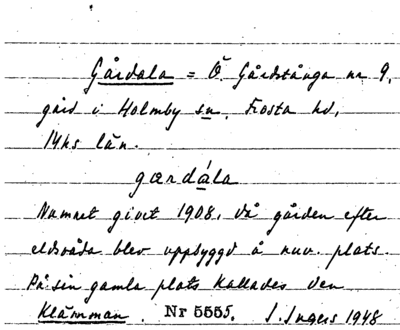 Gårdala = Ö. Gårdstånga nr 9,
gård i Holmby sn, Frosta hd,
Mhs län.
gærdála
Namnet givet 1908, då gården efter
eldsvåda blev uppbyggd å nuv. plats.
På sin gamla plats kallades den
Klämman. Nr 5555. I. Ingers 1948